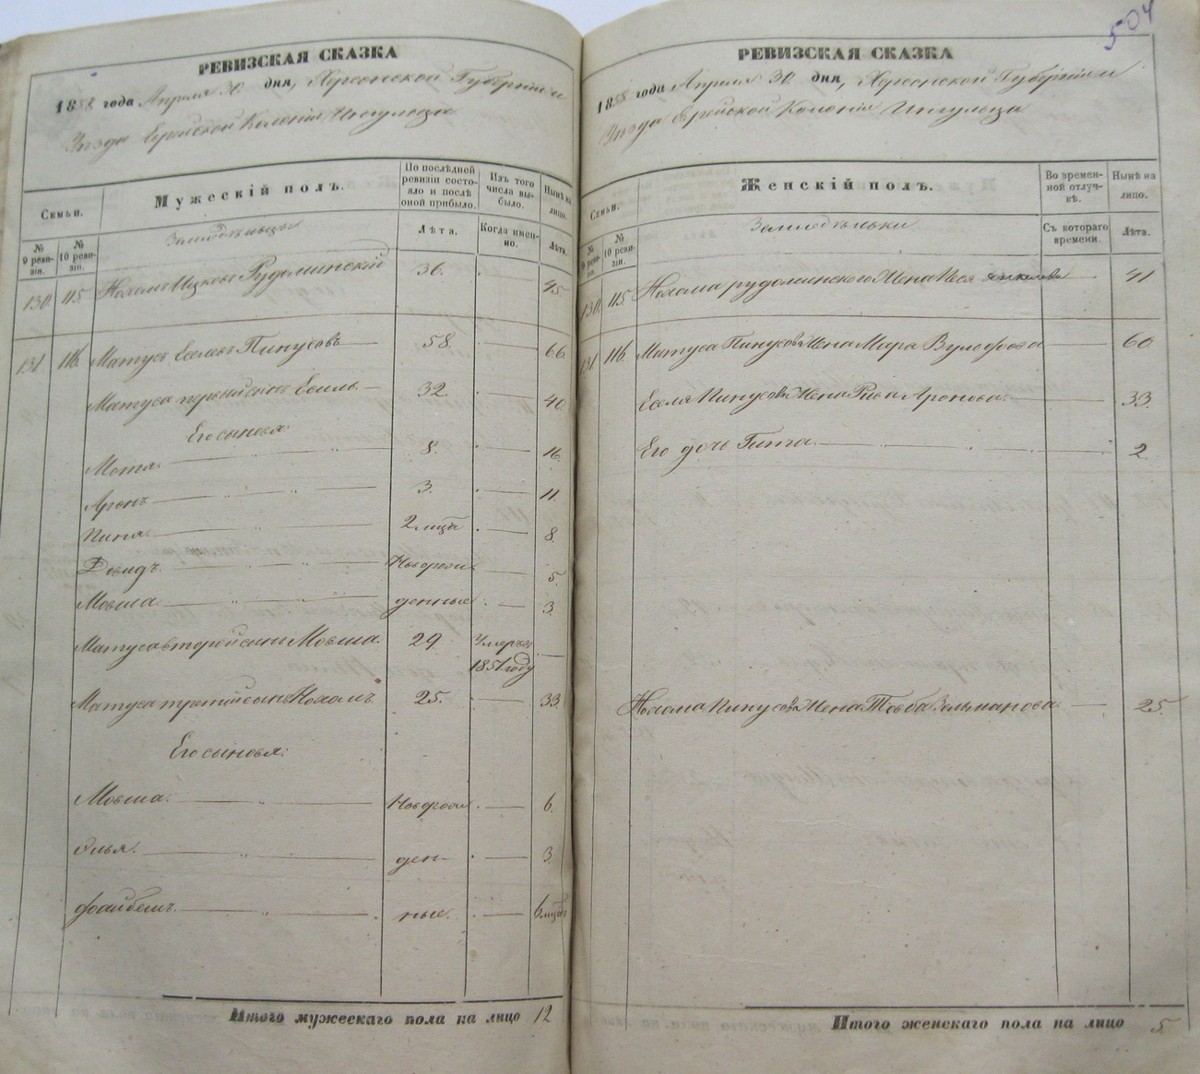 504
РЕВИЗСКАЯ СКАЗКА
1858 года Апреля 30 дня, Херсонской Губернии и
Уезда Еврейской Колонии Ингулеца
Семьи.
Мужескій полъ.
По послѣдней ревизіи состояло и послѣ оной прибыло.
Изъ того числа выбыло.
Нынѣ на лицо.
№ 9 ревизіи.
№ 10 ревизіи.
Лѣта.
Когда именно.
Лѣта.
Земледѣльцы
130 115 Нохамъ Ицковъ Рудоминскій 36. 45
131 116 Матусъ Еселевъ Пинусовъ 58. 66
Матуса первый сынъ Есиль 32. 40
Его сыновья
Мотя 8. 16
Аронъ 3. 11
Пиня 2 мцa 8
Довидъ Новорож 5.
Мовша денные 3
Матуса второй сынъ Мовша. 29 Умеръ въ 1851 году
Матуса третій сынъ Нохамъ 25. 33
Его сыновья:
Мовша. Новорож 6
Элья. ден- 3
Файбешъ ные. 6 мцов
Итого мужескаго пола на лицо 12
РЕВИЗСКАЯ СКАЗКА
1858 года Апреля 30 дня, Херсонской Губернии и
Уезда Еврейской Колонии Ингулеца
Семьи.
Женскій полъ.
Во временной отлучкѣ.
Нынѣ на лицо.
№ 9 ревизіи.
№ 10 ревизіи.
Съ котораго времени.
Лѣта.
Земледѣльки
130 115 Нохама рудоминского Жена Песя 41
131 116 Матуса Пинусова Жена Мира Вульфова 60
Еселя Пинусова Жена Рива Аронова 33
Его дочь Гита 2
Нохама Пинусова Жена Товба Зельманова 25
Итого женскаго пола на лицо 5